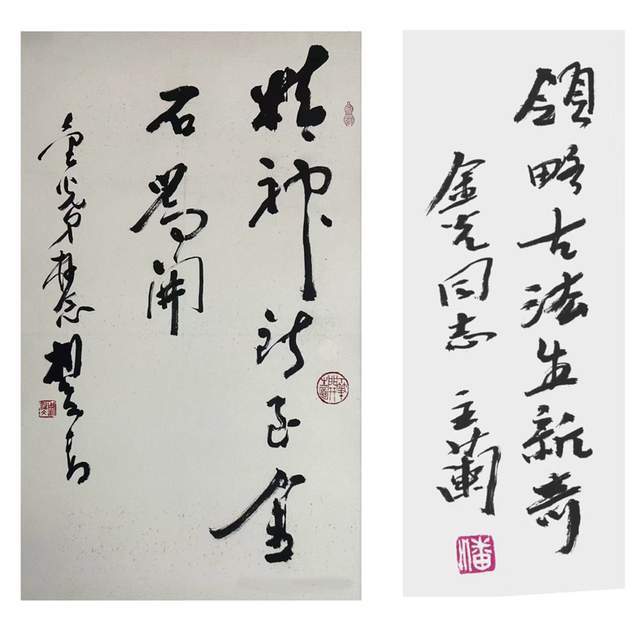 精神所至金
石為開
金光弟存念
領略古法生新奇
金光同志 主蘭
潘